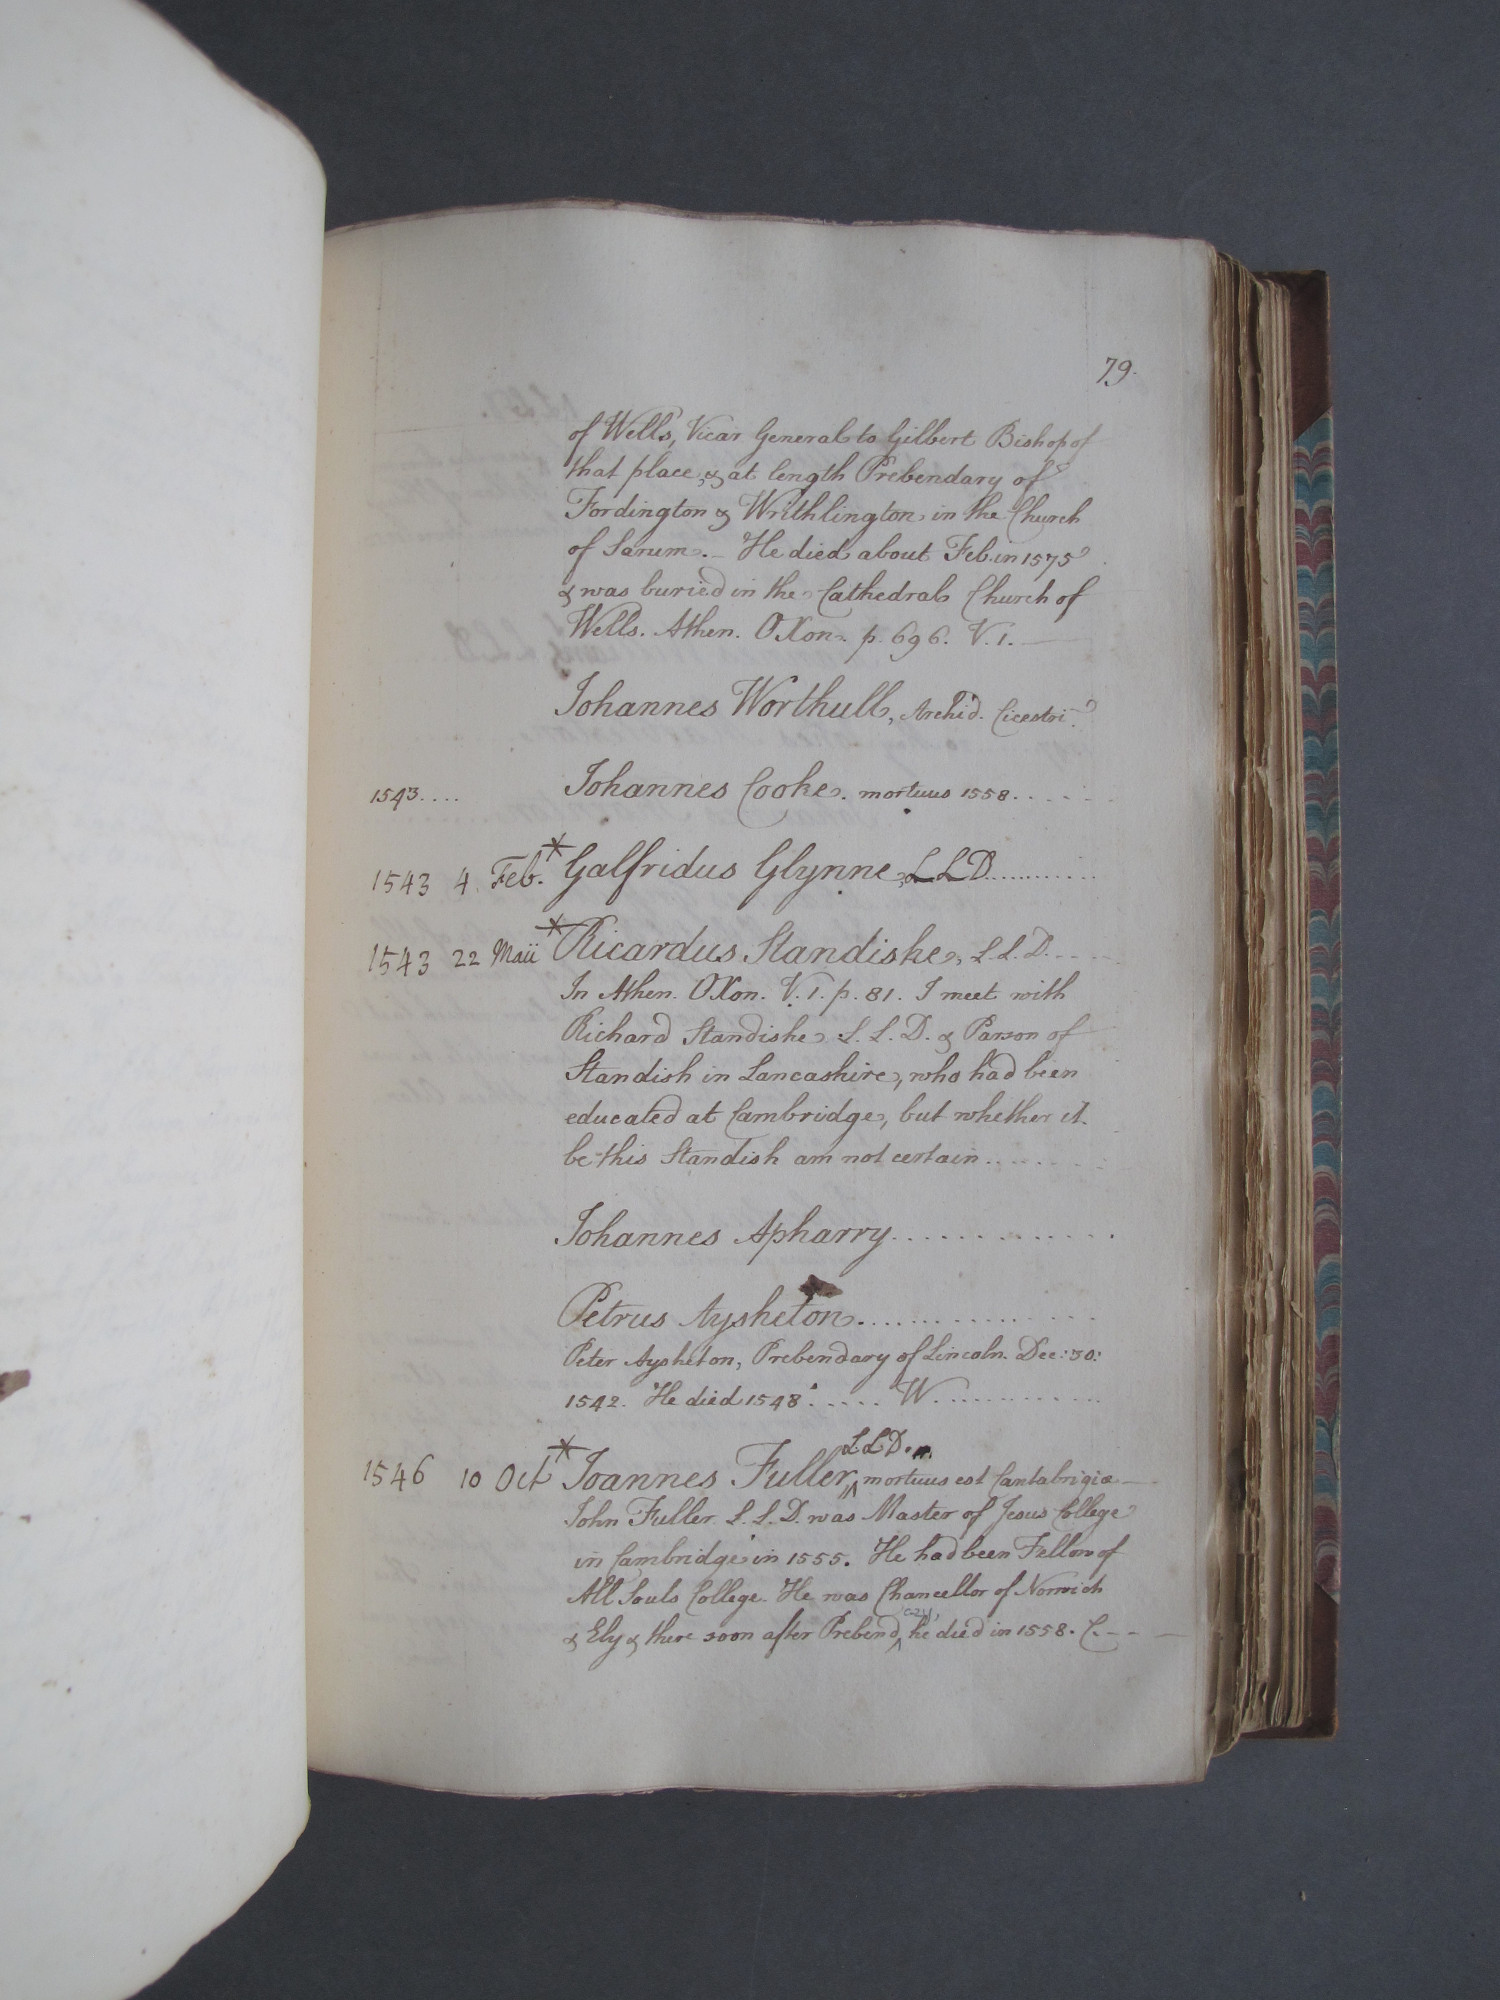 79.
of Wells, Vicar General to Gilbert Bishop of
that place, & at length Prebendary of
Fordington & Writhlington in the Church
of Sarum. - He died about Feb. in 1575
& was buried in the Cathedral Church of
Wells. Athen. OXon. p. 696. V. 1.
Johannes Worthull, Archid. Cicestri
1543.... Johannes Cooke. mortuus 1558......
1543 4. Feb. * Galfridus Glynne, LLD...........
1543 22 Maii * Ricardus Standishe, L.L.D......
In Athen. OXon. V. 1. p. 81. I meet with
Richard Standishe L. L. D. & Parson of
Standish in Lancashire, who had been
educated at Cambridge, but whether it
be this Standish am not certain........
Johannes Apharry..............
Petrus Aysheton................
Peter Aysheton, Prebendary of Lincoln. Dec: 30:
1542. He died 1548...... W.............
1546 10 Oct * Joannes Fuller, LLD. mortuus est Cantabrigiæ
John Fuller L. L. D. was Master of Jesus College
in Cambridge in 1555. He had been Fellow of
All Souls College. He was Chancellor of Norwich
& Ely & there soon after Prebend, he died in 1558. C.---